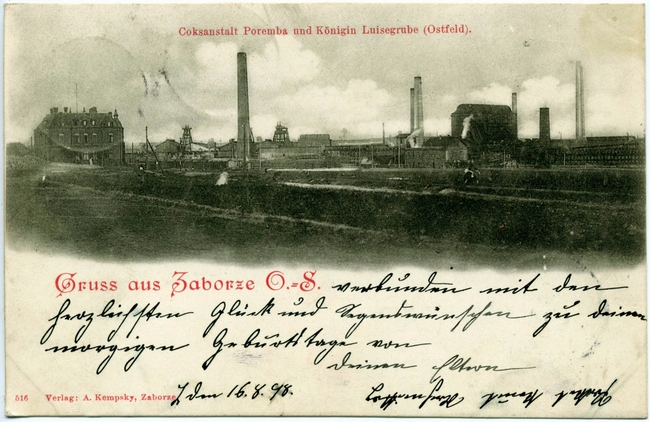 Coksanstalt Poremba und Königin Luisegrube (Ostfeld).
Gruss aus Zaborze O.-S. verbunden mit den
herzlichsten Glück und Segenswünschen zu deinem
morgigen Geburtstage von
deinen Eltern
516 Verlag: A. Kempsky, Zaborze, den 16.8.98.